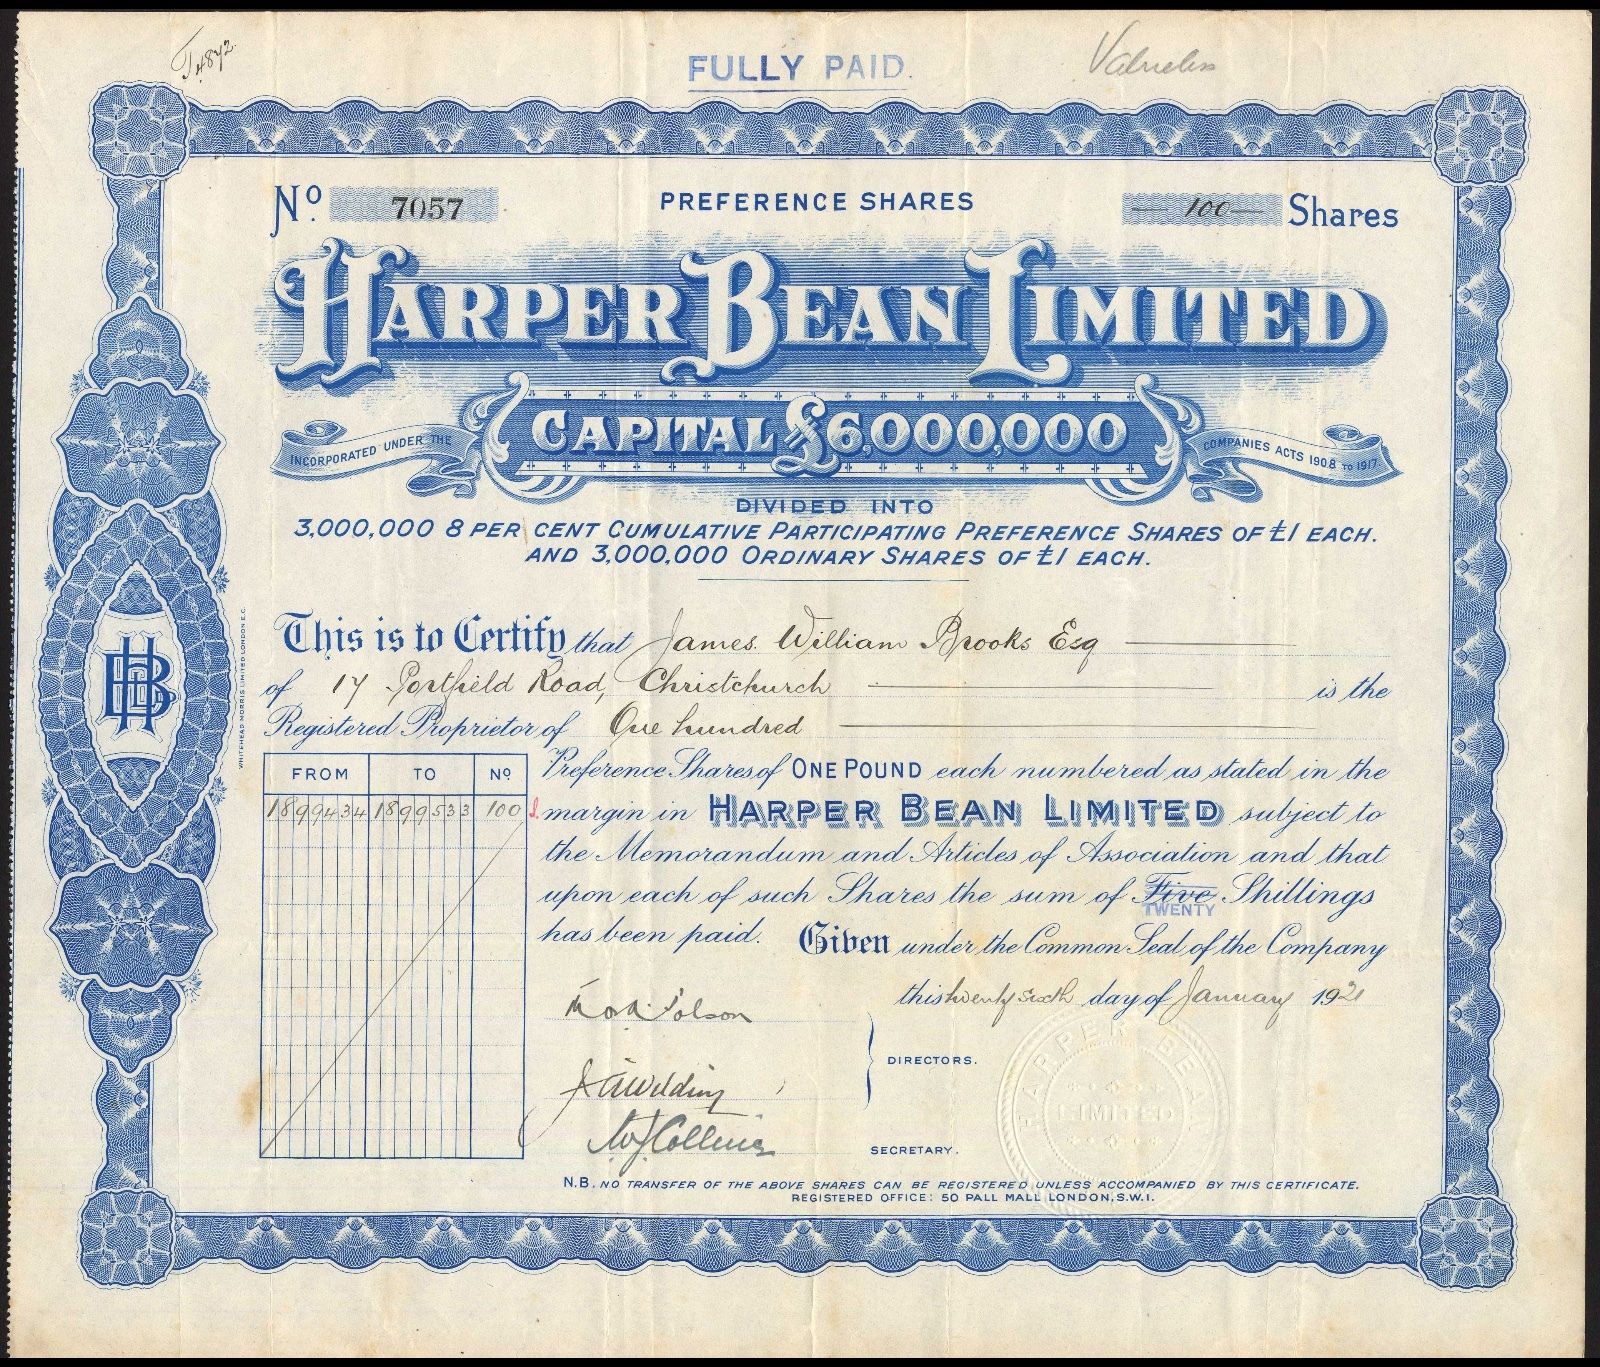 T4872
FULLY PAID.
Valueless
No. 7057
PREFERENCE SHARES
—100— Shares
HARPER BEAN LIMITED
CAPITAL £6,000,000
INCORPORATED UNDER THE
COMPANIES ACTS 1908 TO 1917.
DIVIDED INTO
3,000,000 8 PER CENT CUMULATIVE PARTICIPATING PREFERENCE SHARES OF £1 EACH.
AND 3,000,000 ORDINARY SHARES OF £1 EACH.
This is to Certify that James William Brooks Esq
of 17 Portfield Road, Christchurch is the
Registered Proprietor of One hundred
FROM TO No
1899434 1899533 100
Preference Shares of ONE POUND each numbered as stated in the
margin in HARPER BEAN LIMITED subject to
the Memorandum and Articles of Association and that
upon each of such Shares the sum of Five Shillings
TWENTY
has been paid. Given under the Common Seal of the Company
this twenty sixth day of January 1921
DIRECTORS.
SECRETARY.
HARPER BEAN
LIMITED
N.B. NO TRANSFER OF THE ABOVE SHARES CAN BE REGISTERED UNLESS ACCOMPANIED BY THIS CERTIFICATE.
REGISTERED OFFICE: 50 PALL MALL LONDON, S.W.1.
HB
WHITEHEAD MORRIS LIMITED LONDON E.C.